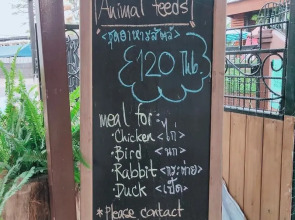 Animal feeds!
<ชุดอาหารสัตว์>
120 THB.
meal for:
·Chicken <ไก่>
·Bird <นก>
·Rabbit <กระต่าย>
·Duck <เป็ด>
*Please contact